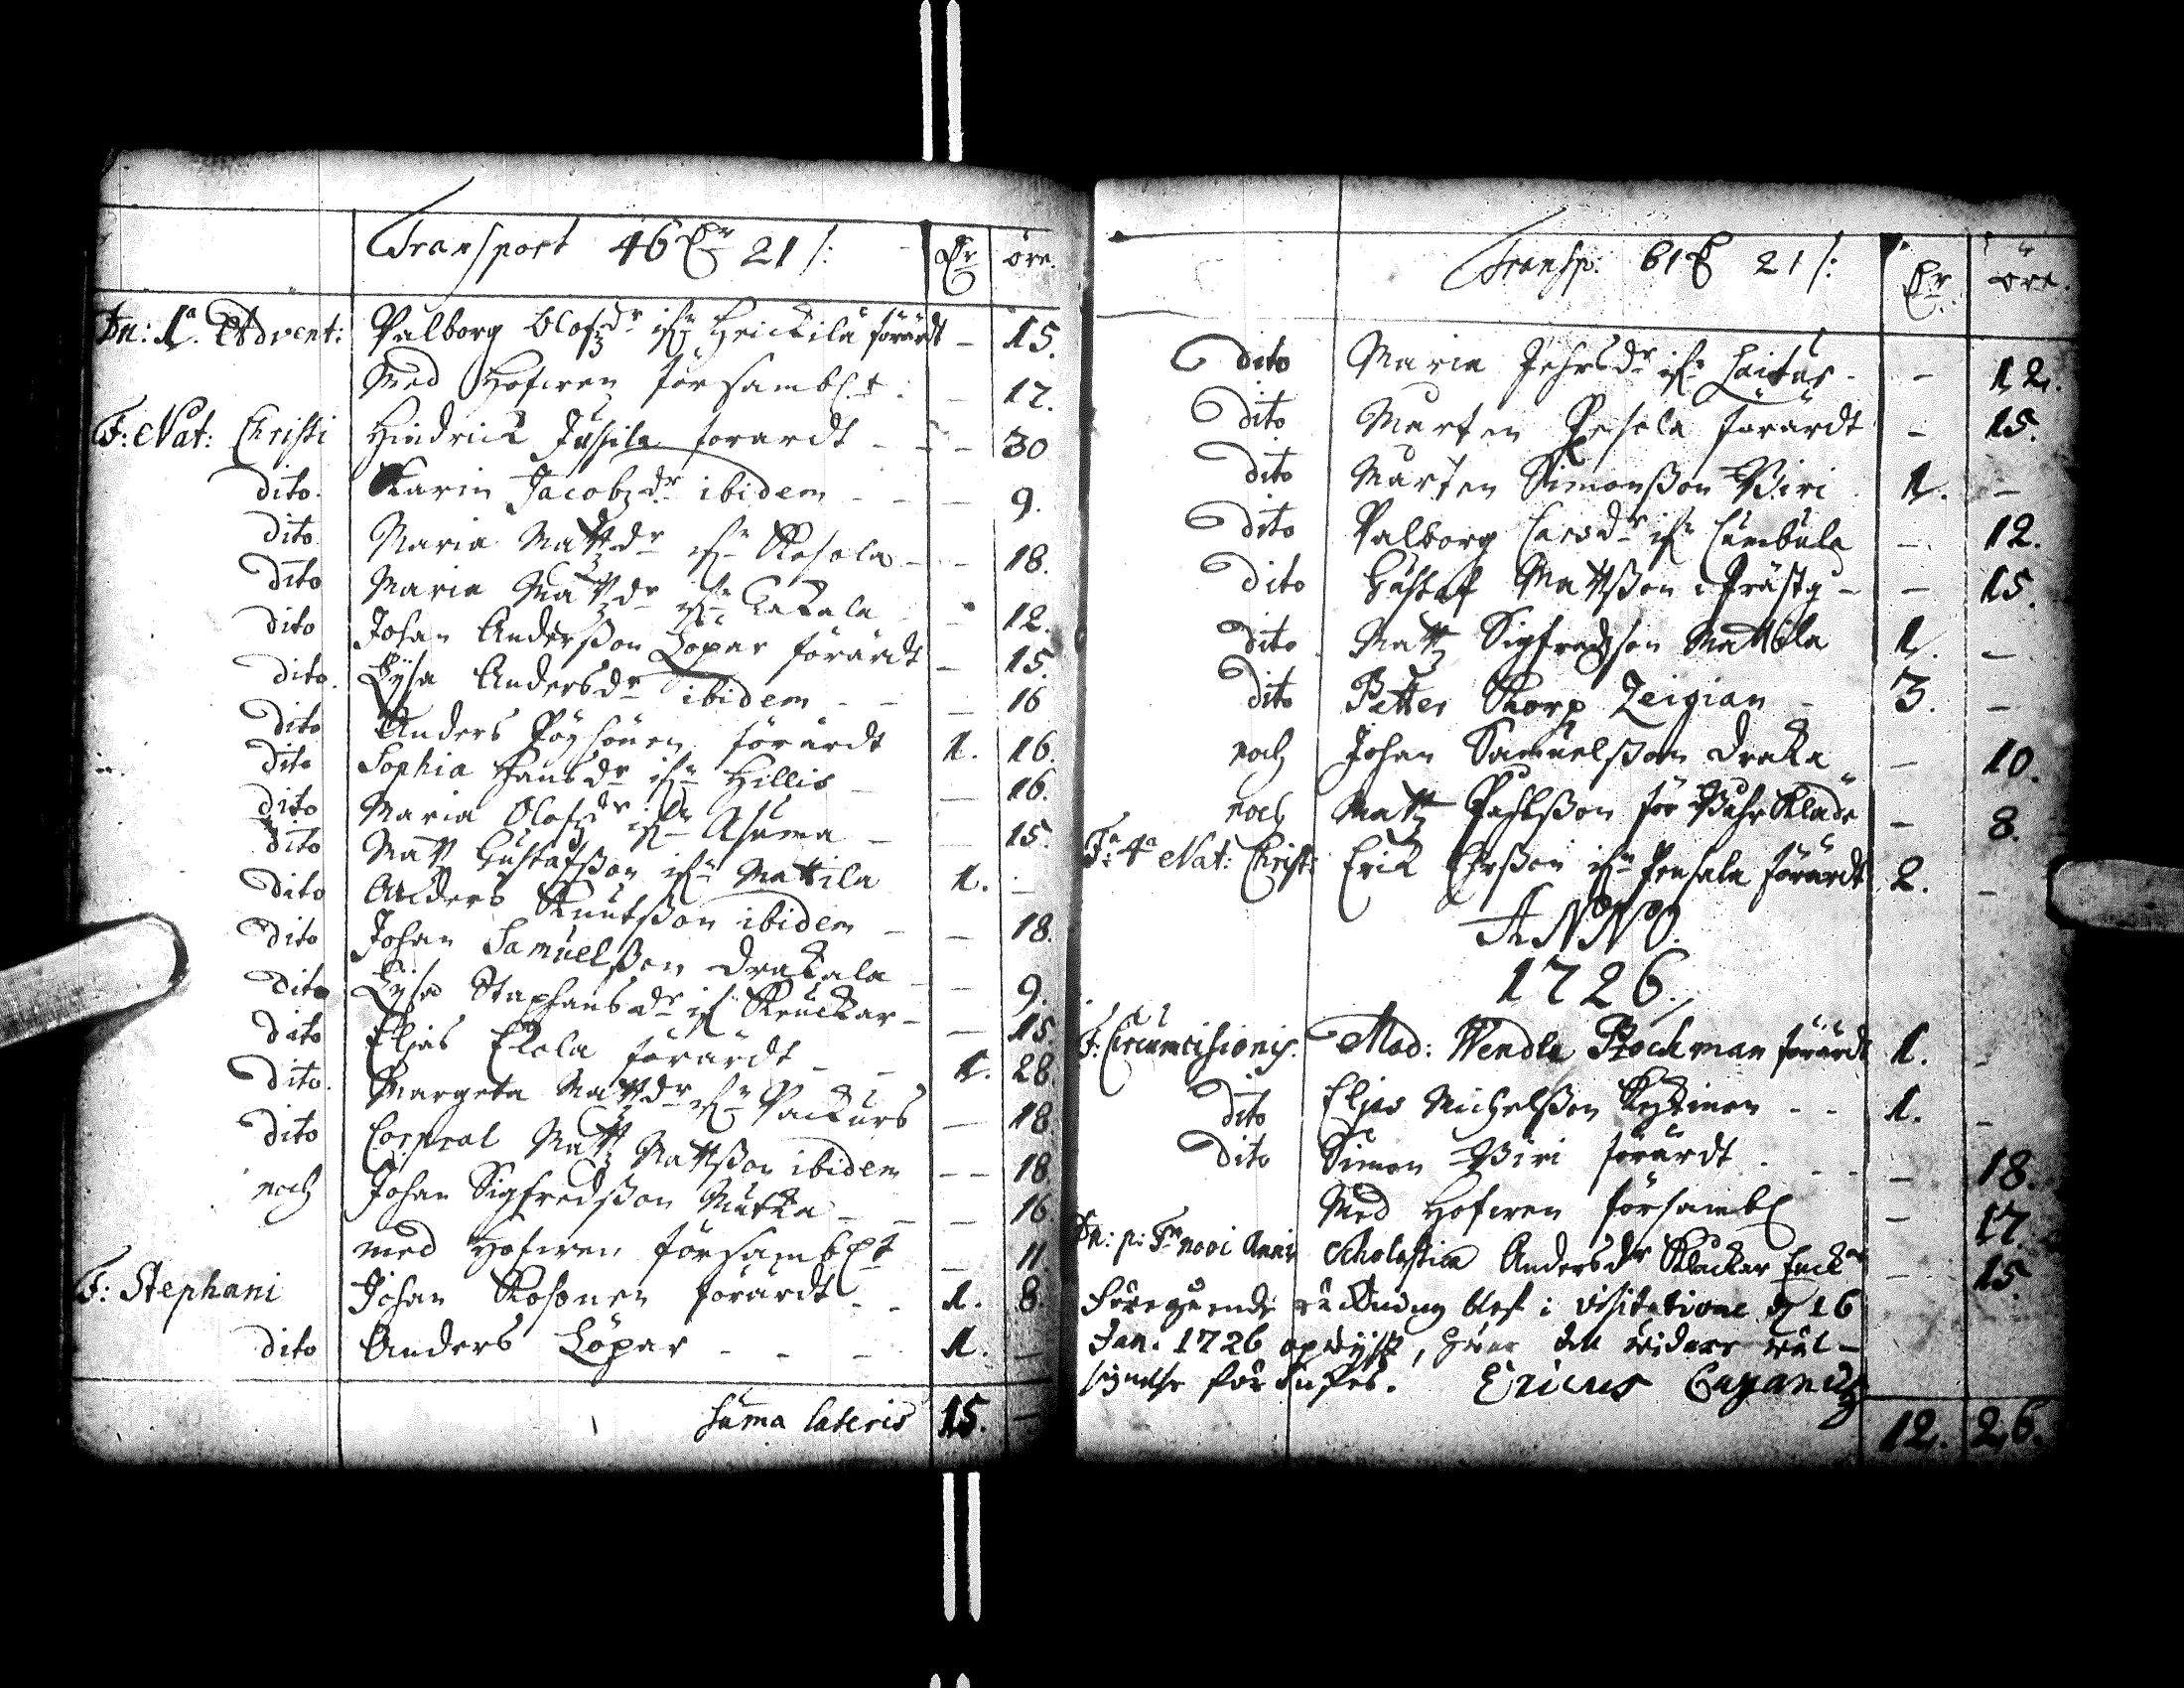 Transport 46 Dr 21 /: Dr öre.
Dn: 1a Advent: Valborg Olofzdr ifrn Heickilä förärdt – 15.
Med Hofwen försambl:t – 17.
F: Nat: Christi Hindrick Jussila förärdt – – – 30
dito. Karin Jacobzdr ibidem – – – 9.
dito. Maria Mattzdr ifrn Kosola – – 18.
dito Maria Mattzdr ifrn Cakala – 12.
dito Johan Andersson Löpar förärdt – 15.
dito. Lysa Andersdr ibidem – – – 16
dito Anders Pöysönen förärdt 1. 16.
dito Sophia Hansdr ifrn Hillis – – 16.
dito Maria Olofzdr ifrn Asuma – – 15.
dito Matt Gustafsson ifrn Mattila 1. –
dito Anders Knutsson ibidem – – 18.
dito Johan Samuelsson Drakala – – 9.
dito Lysa Staphansdr if Kruckar – – 15.
dito Eljas Elola förärdt – – 1. 28.
dito. Margeta Mattzdr ifrn Packurs – 18.
dito Corpral Matz Mattsson ibidem – – 18.
noch Johan Sigfredsson Mutka – – – 16.
med Hofwen försambl:t – 11.
F: Stephani Johan Kosonen förärdt – – 1. 8.
dito Anders Löpar – – – 1. –
Suma lateris 15. –
Transp: 61 D 21 /: Dr. öre.
dito Maria Jehrsdr ifrn Laitus – – 12.
dito Marten Pesola förärdt – 15.
dito Marten Simonsson Wiri 1. –
dito Valborg Larsdr ifrn Cumbula – 12.
dito Gustaf Mattsson i Prästg – – 15.
dito Matz Sigfredsson Mattila 1. –
dito Petter Skorp Zeigian – 3. –
noch Johan Samuelsson Draka – 10.
noch Matz Pahlsson för Wahrkläde – 8.
Fa 4a Nat: Christi Erik Ehrsson ifrn Pensala förärdt 2. –
ANNO.
1726.
F: Circumcisionis. Mad: Wendla Brockman förärdt 1. –
dito Eljas Michelsson Kytinen – – 1. –
dito Simon Wiri förärdt – – – 18.
Med Hofwen försambl – 17.
Dn: p: Fm novi Anni Scholastica Andersdr Kluckar Enck – 15.
Föregående räkning blef i visitatione d 16
Jan. 1726 oplyst, Gud den vidare väl–
signelse förläne. Ericus Cajanus
12. 26.